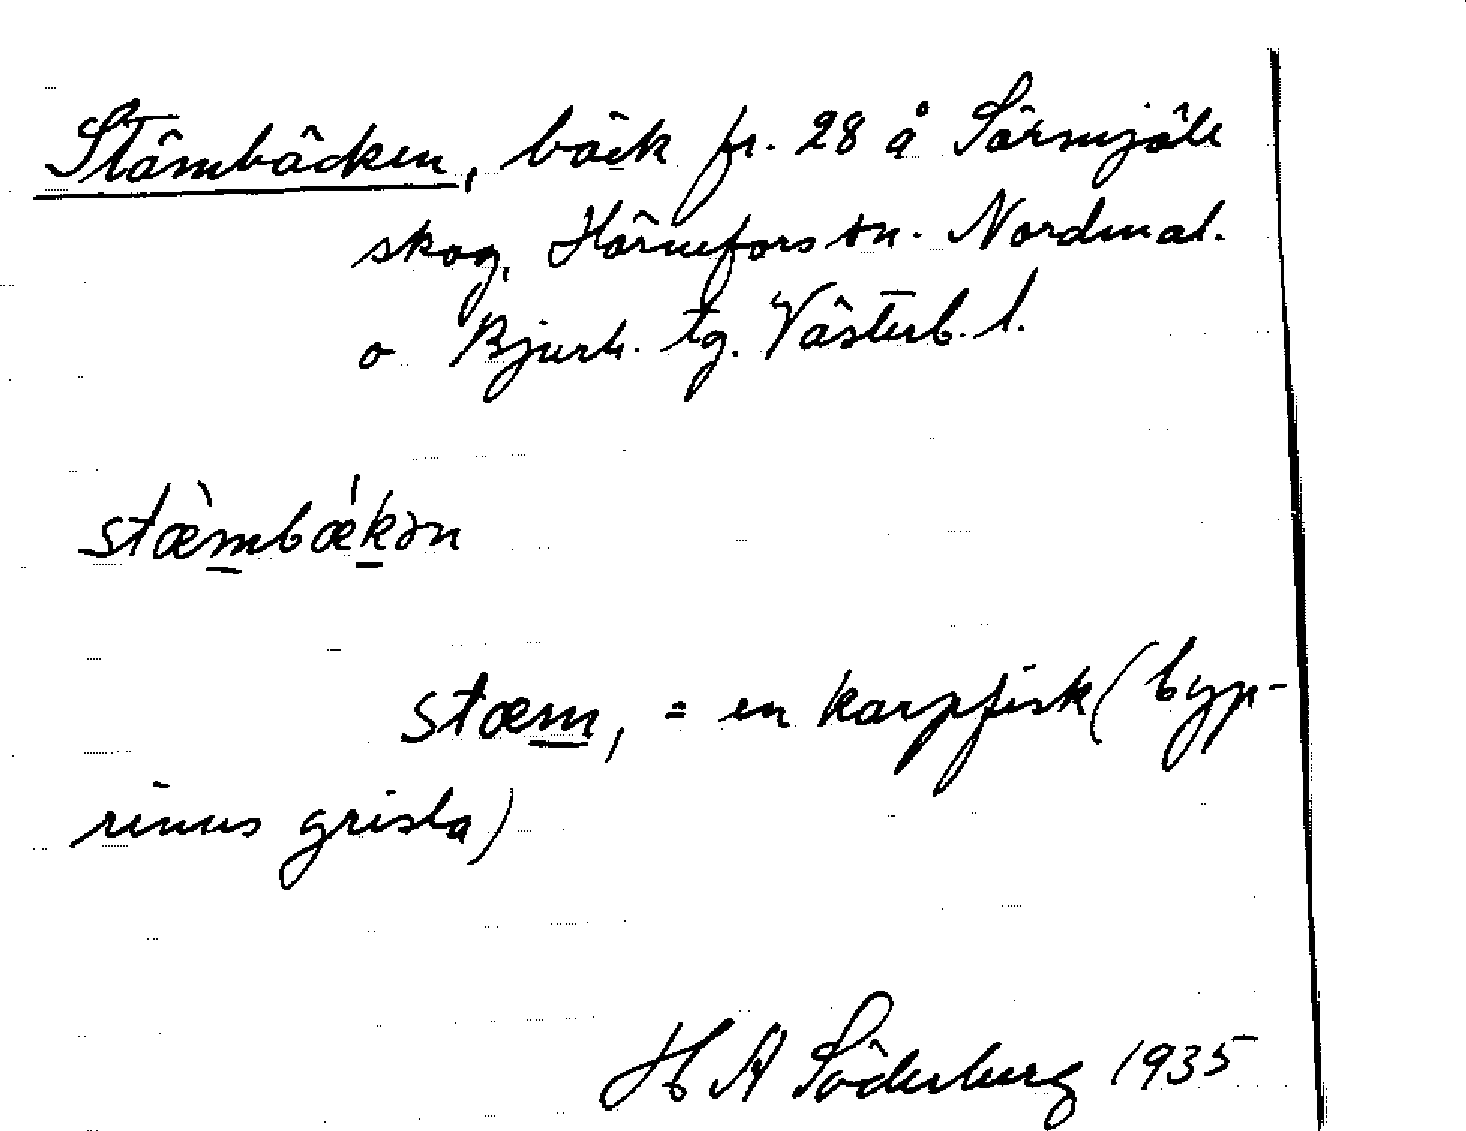 Stämbäcken, bäck fr. 28 å Sörmjöle
skog, Hörnefors sn. Nordmal.
o Bjurh. tg. Västerb. l.
stæ̀mbǽkən
stæm, = en karpfisk (byp-
rinus grisla)
H A Söderberg 1935